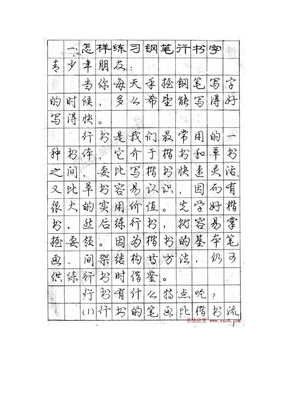 一、怎样练习钢笔行书字
青少年朋友：
当你每天手握钢笔写字
的时候，多么希望能写得好
写得快。
行书是我们最常用的一
种书体，它介于楷书和草书
之间，要比写楷书快速灵活，
又比草书容易认识，因而有
很大的实用价值。先学好楷
书，然后练行书，就容易掌
握要领。因为楷书的基本笔
画、间架结构方法，仍可
供练行书时借鉴。
行书有什么特点呢？
(1)行书的笔画比楷书流